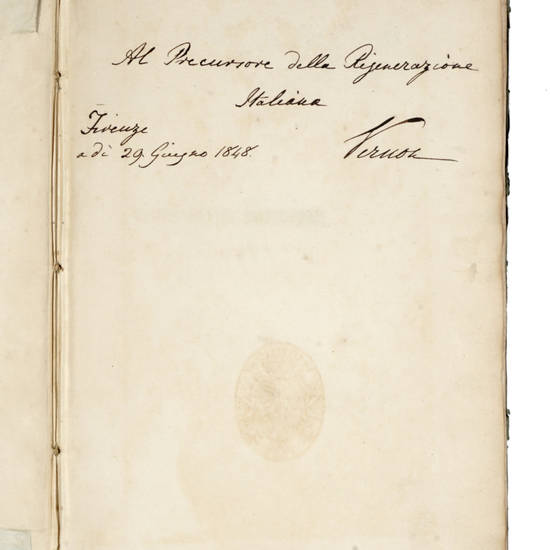 Al Precursore della Rigenerazione
Italiana
Firenze
a dì 29. Giugno 1848.
Vernon